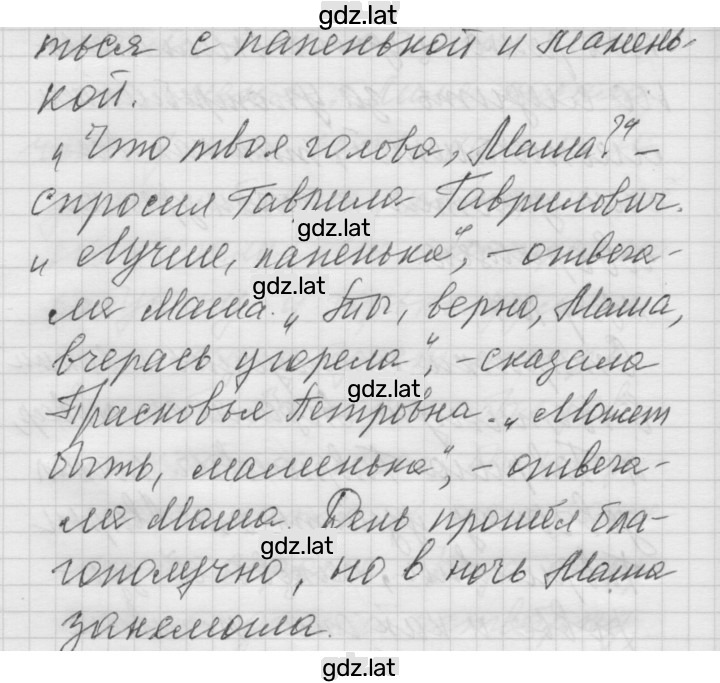 gdz.lat
ться с папенькой и мамень-
кой.
„Что твоя голова, Маша?“ –
спросил Гаврила Гаврилович.
gdz.lat
„Лучше, папенька“, – отвеча-
gdz.lat
ла Маша. „Ты, верно, Маша,
вчерась угорела“, – сказала
gdz.lat
Прасковья Петровна. „Может
быть, маменька“, – отвеча-
ла Маша. День прошёл бла-
gdz.lat
гополучно, но в ночь Маша
занемогла.
gdz.lat